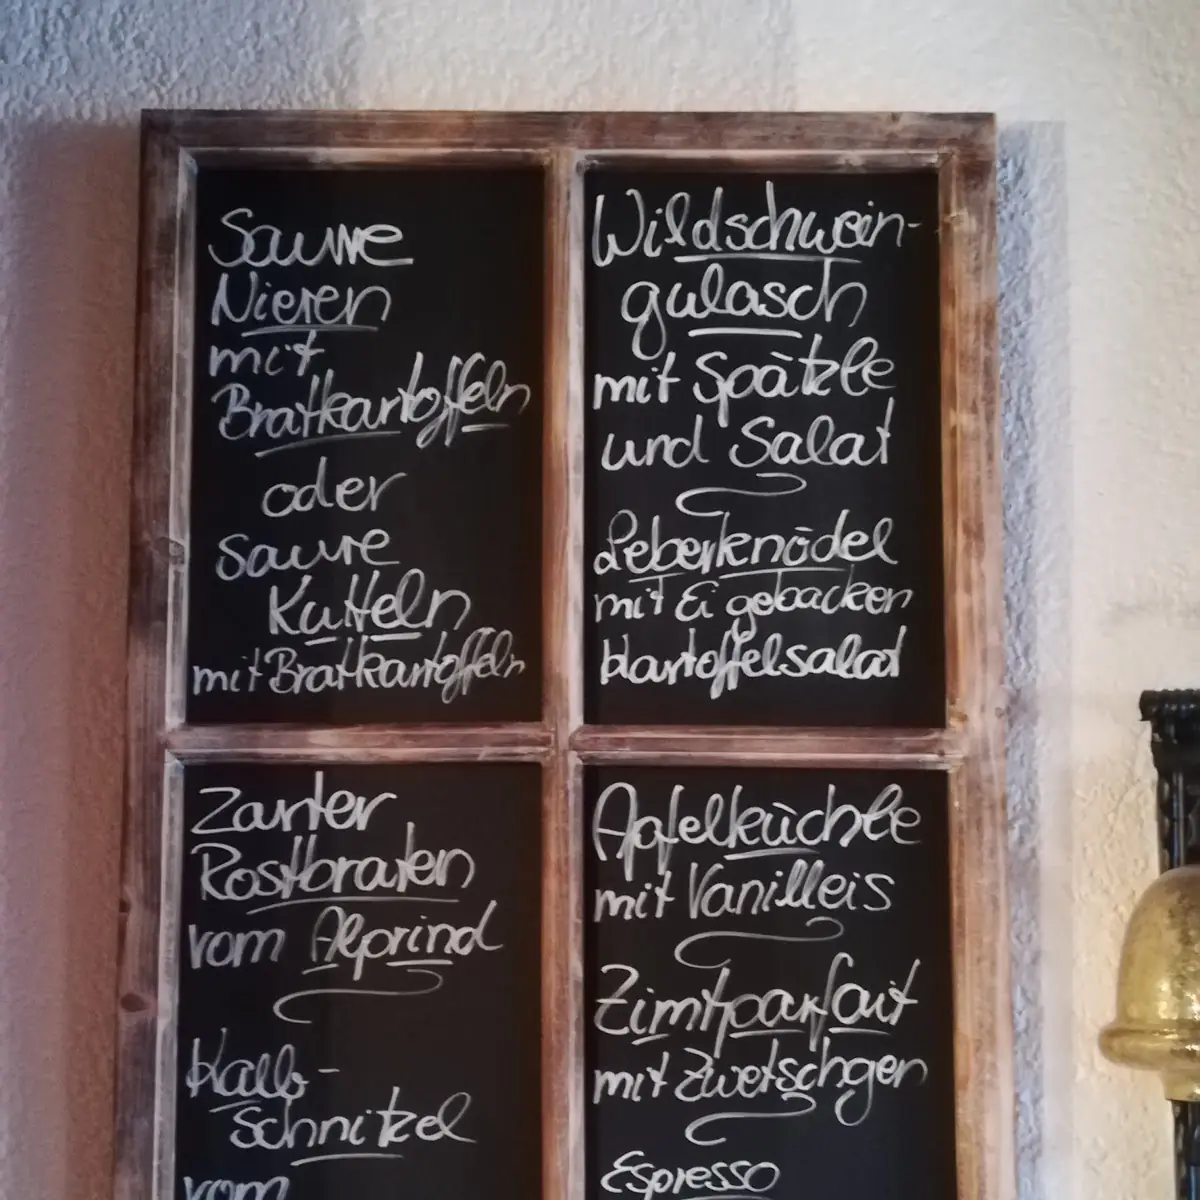 Saure
Nieren
mit
Bratkartoffeln
oder
saure
Kutteln
mit Bratkartoffeln
Wildschwein-
gulasch
mit Spätzle
und Salat
Leberknödel
mit Ei gebacken
Kartoffelsalat
Zarter
Rostbraten
vom Alprind
Kalb-
schnitzel
vom
Apfelküchle
mit Vanilleis
Zimtparfait
mit Zwetschgen
Espresso